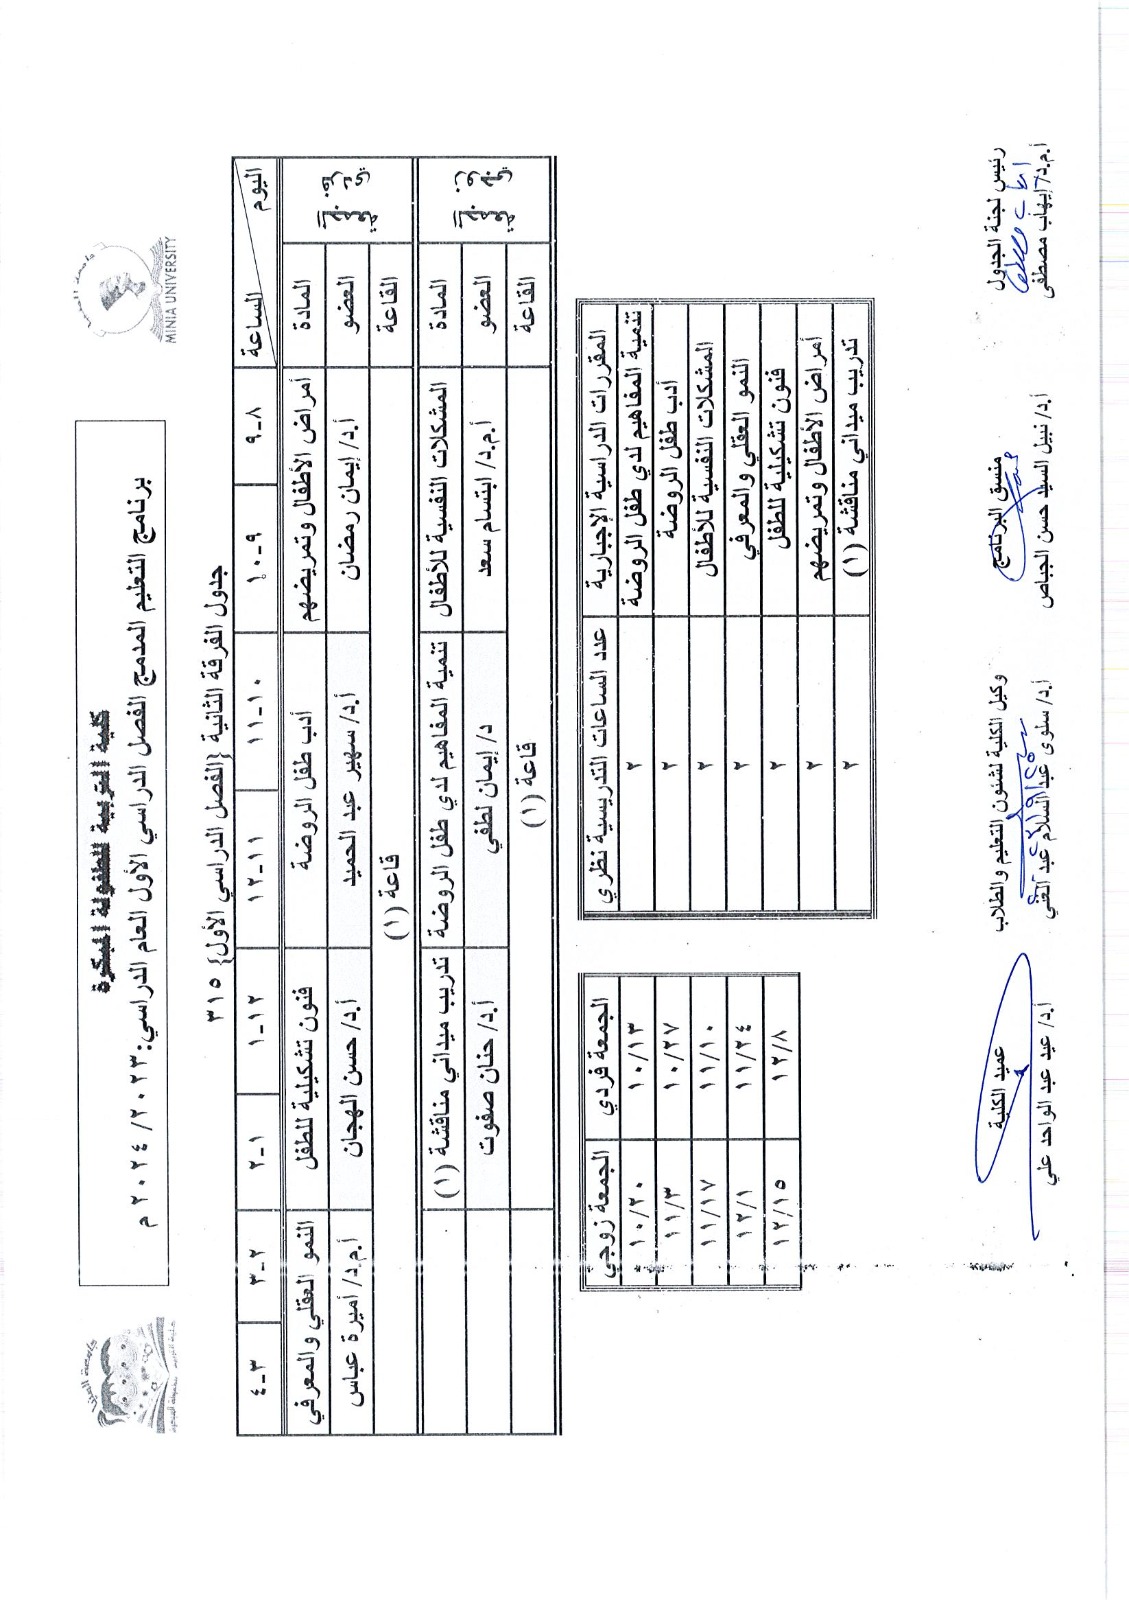 MINIA UNIVERSITY
كلية التربية للطفولة المبكرة
برنامج التعليم المدمج الفصل الدراسي الأول العام الدراسي: ٢٠٢٣/ ٢٠٢٤ م
جدول الفرقة الثانية {الفصل الدراسي الأول} ٣١٥
اليوم الساعة ٨-٩ ٩-١٠ ١٠-١١ ١١-١٢ ١٢-١ ١-٢ ٢-٣ ٣-٤
المادة أمراض الأطفال وتمريضهم أدب طفل الروضة فنون تشكيلية للطفل النمو العقلي والمعرفي
العضو أ.د/ إيمان رمضان أ.د/ سهير عبد الحميد أ.د/ حسن الهجان أ.م.د/ أميرة عباس
القاعة قاعة (١)
المادة المشكلات النفسية للأطفال تنمية المفاهيم لدي طفل الروضة تدريب ميداني مناقشة (١)
العضو أ.م.د/ ابتسام سعد د/ إيمان لطفي أ.د/ حنان صفوت
القاعة قاعة (١)
المقررات الدراسية الإجبارية عدد الساعات التدريسية نظري
تنمية المفاهيم لدي طفل الروضة ٢
أدب طفل الروضة ٢
المشكلات النفسية للأطفال ٢
النمو العقلي والمعرفي ٢
فنون تشكيلية للطفل ٢
أمراض الأطفال وتمريضهم ٢
تدريب ميداني مناقشة (١) ٢
الجمعة فردي الجمعة زوجي
١٠/١٣ ١٠/٢٠
١٠/٢٧ ١١/٣
١١/١٠ ١١/١٧
١١/٢٤ ١٢/١
١٢/٨ ١٢/١٥
رئيس لجنة الجدول منسق البرنامج وكيل الكلية لشئون التعليم والطلاب عميد الكلية
أ.م.د/ إيهاب مصطفى أ.د/ نبيل السيد حسن الجباص أ.د/ سلوى عبد السلام عبد الغني أ.د/ عيد عبد الواحد علي